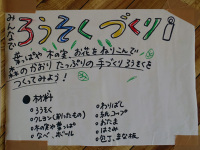 みんなで
ろうそくづくり
葉っぱや木の実、お花をねりこんで
森のかおりたっぷりの手づくりろうそくを
つくってみよう!
●材料
○ろうそく
○クレヨン(割ったもの)
○木の実や葉っぱ
○なべ、ボール
○わりばし
○紙コップ
○おたま
○はさみ
○包丁、まな板